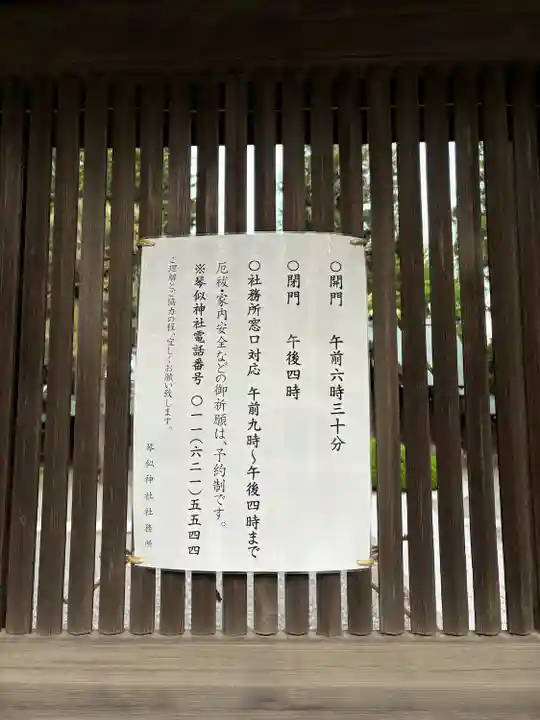 〇開門　午前六時三十分
〇閉門　午後四時
〇社務所窓口対応　午前九時～午後四時まで
厄祓・家内安全などの御祈願は、予約制です。
※琴似神社電話番号　〇一一（六二一）五五四四
ご理解とご協力の程、宜しくお願い致します。
琴似神社社務所